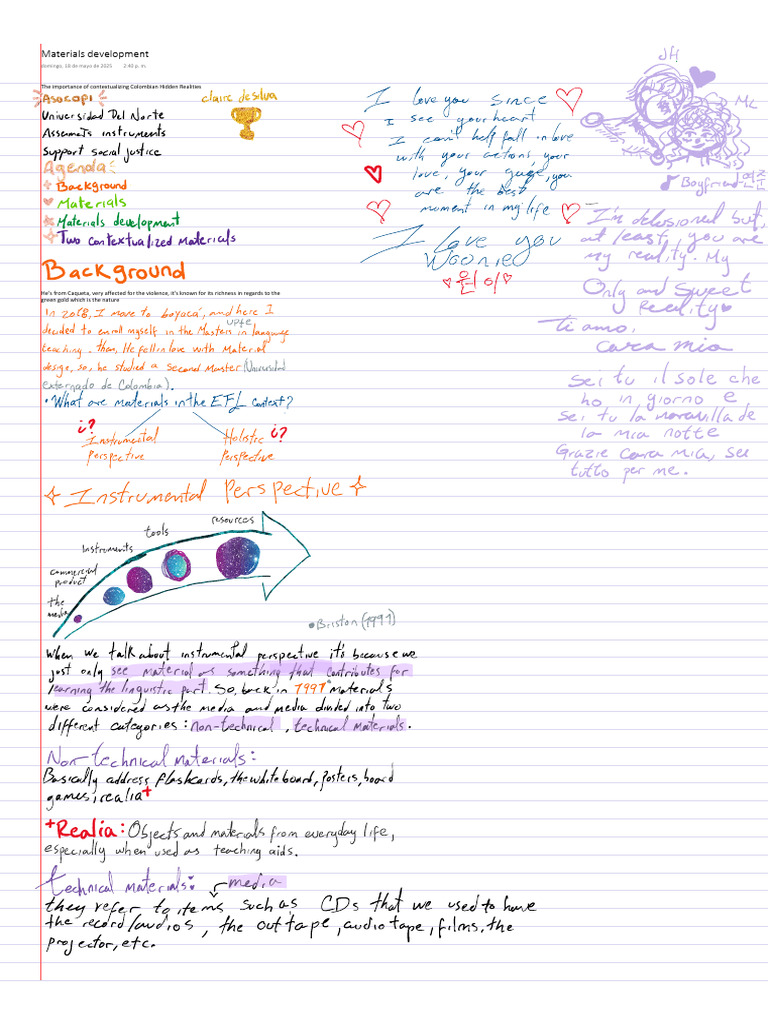 Materials development
domingo, 18 de mayo de 2025 2:40 p. m.
The importance of contextualizing Colombian Hidden Realities
Asocopi
claire de silva
Universidad Del Norte
Assemats instruments
Support social justice
Agenda
Background
Materials
Materials development
Two contextualized materials
Background
He's from Caqueta, very affected for the violence, it's known for its richness in regards to the
green gold which is the nature
In 2018, I move to boyacá, and here I
uptc
decided to enroll myself in the Masters in language
teaching. then, He fall in love with Material
design, so, he studied a second Master (Universidad
externado de Colombia).
• What are materials in the EFL context?
¿?
Instrumental
Perspective
Holistic ¿?
Perspective
Instrumental Perspective
resources
tools
Instruments
commercial
product
the
media
• Briston (1991)
When we talk about instrumental perspective it's because we
just only see material as something that contributes for
learning the linguistic part. So, back in 1997 materials
were considered as the media and media divided into two
different categories: non-technical, technical materials.
Non-technical materials:
Basically address flashcards, the whiteboard, posters, board
games, realia+
+Realia: Objects and materials from everyday life,
especially when used as teaching aids.
technical materials: media
they refer to items such as CDs that we used to have
the record/audios, the out tape, audio tape, films, the
projector, etc.
I love you since
I see your heart
I can't help fall in love
with your actions, your
love, your gaze, you
are the best
moment in my life
I love you
Woonie
원이
JH
ML
Boyfriend-연준
I'm delusional but,
at least, you are
my reality. My
Only and sweet
Reality
ti amo,
cara mia
sei tu il sole che
ho in giorno e
sei tu la maravilla de
la mia notte
Grazie cara mia, sei
tutto per me.